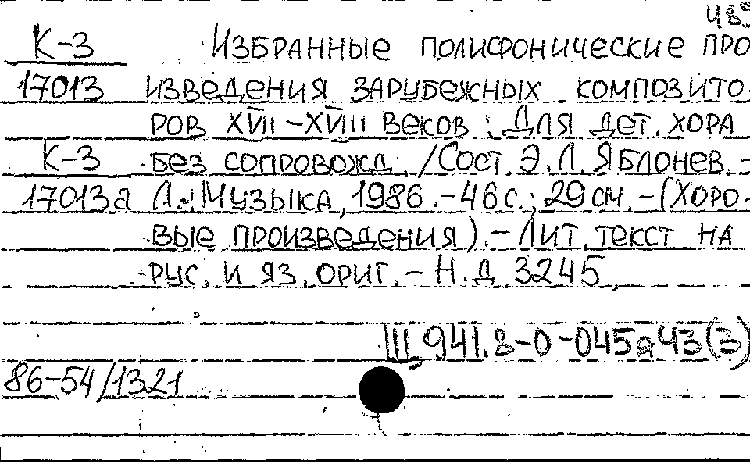 485
К-3 ИЗБРАННЫЕ ПОЛИФОНИЧЕСКИЕ ПРО
17013 ИЗВЕДЕНИЯ ЗАРУБЕЖНЫХ КОМПОЗИТО-
РОВ XVII–XVIII ВЕКОВ : ДЛЯ ДЕТ. ХОРА
К-3 БЕЗ СОПРОВОЖД. /СОСТ. Э.Л. ЯБЛОНЕВ. –
17013а Л.: МУЗЫКА, 1986. – 46 с.; 29 см. – (ХОРО-
ВЫЕ ПРОИЗВЕДЕНИЯ). – ЛИТ. ТЕКСТ НА
РУС. И ЯЗ. ОРИГ. – Н.Д. 3245
III, 941.8-0-045я43(3)
86-54/1321